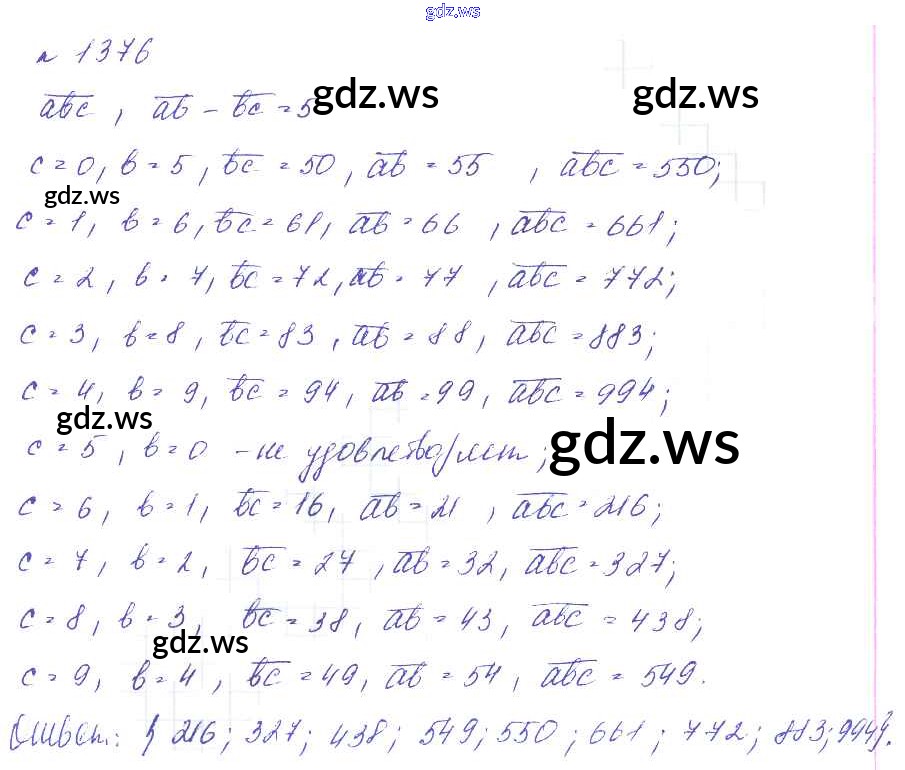 gdz.ws
n 1376
abc, ab - bc = 5 gdz.ws gdz.ws
c = 0, b = 5, bc = 50, ab = 55, abc = 550;
gdz.ws
c = 1, b = 6, bc = 61, ab = 66, abc = 661;
c = 2, b = 7, bc = 72, ab = 77, abc = 772;
c = 3, b = 8, bc = 83, ab = 88, abc = 883;
c = 4, b = 9, bc = 94, ab = 99, abc = 994;
gdz.ws
c = 5, b = 0 - не удовлетворяет; gdz.ws
c = 6, b = 1, bc = 16, ab = 21, abc = 216;
c = 7, b = 2, bc = 27, ab = 32, abc = 327;
c = 8, b = 3, bc = 38, ab = 43, abc = 438;
gdz.ws
c = 9, b = 4, bc = 49, ab = 54, abc = 549.
Ответ: { 216; 327; 438; 549; 550; 661; 772; 883; 994}.